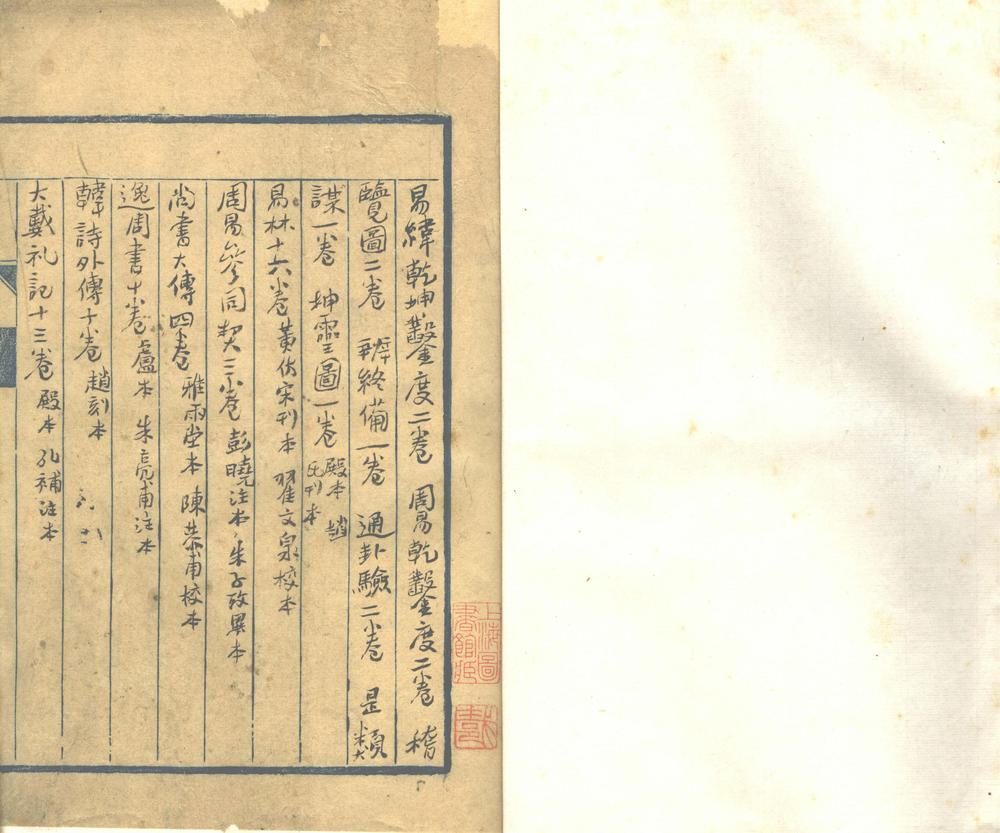 易緯乾坤鑿度二卷 周易乾鑿度二卷 稽
覽圖二卷 辨終備一卷 通卦驗二卷 是類
謀一卷 坤靈圖一卷 殿本 趙
氏刊本
易林十六卷 黃仿宋刊本 翟文泉校本
周易參同契三卷 彭曉注本 朱子攷異本
尚書大傳四卷 雅雨堂本 陳恭甫校本
逸周書十卷 盧本 朱亮甫注本
韓詩外傳十卷 趙刻本
大戴礼記十三卷 殿本 孔補注本
上海圖
書館